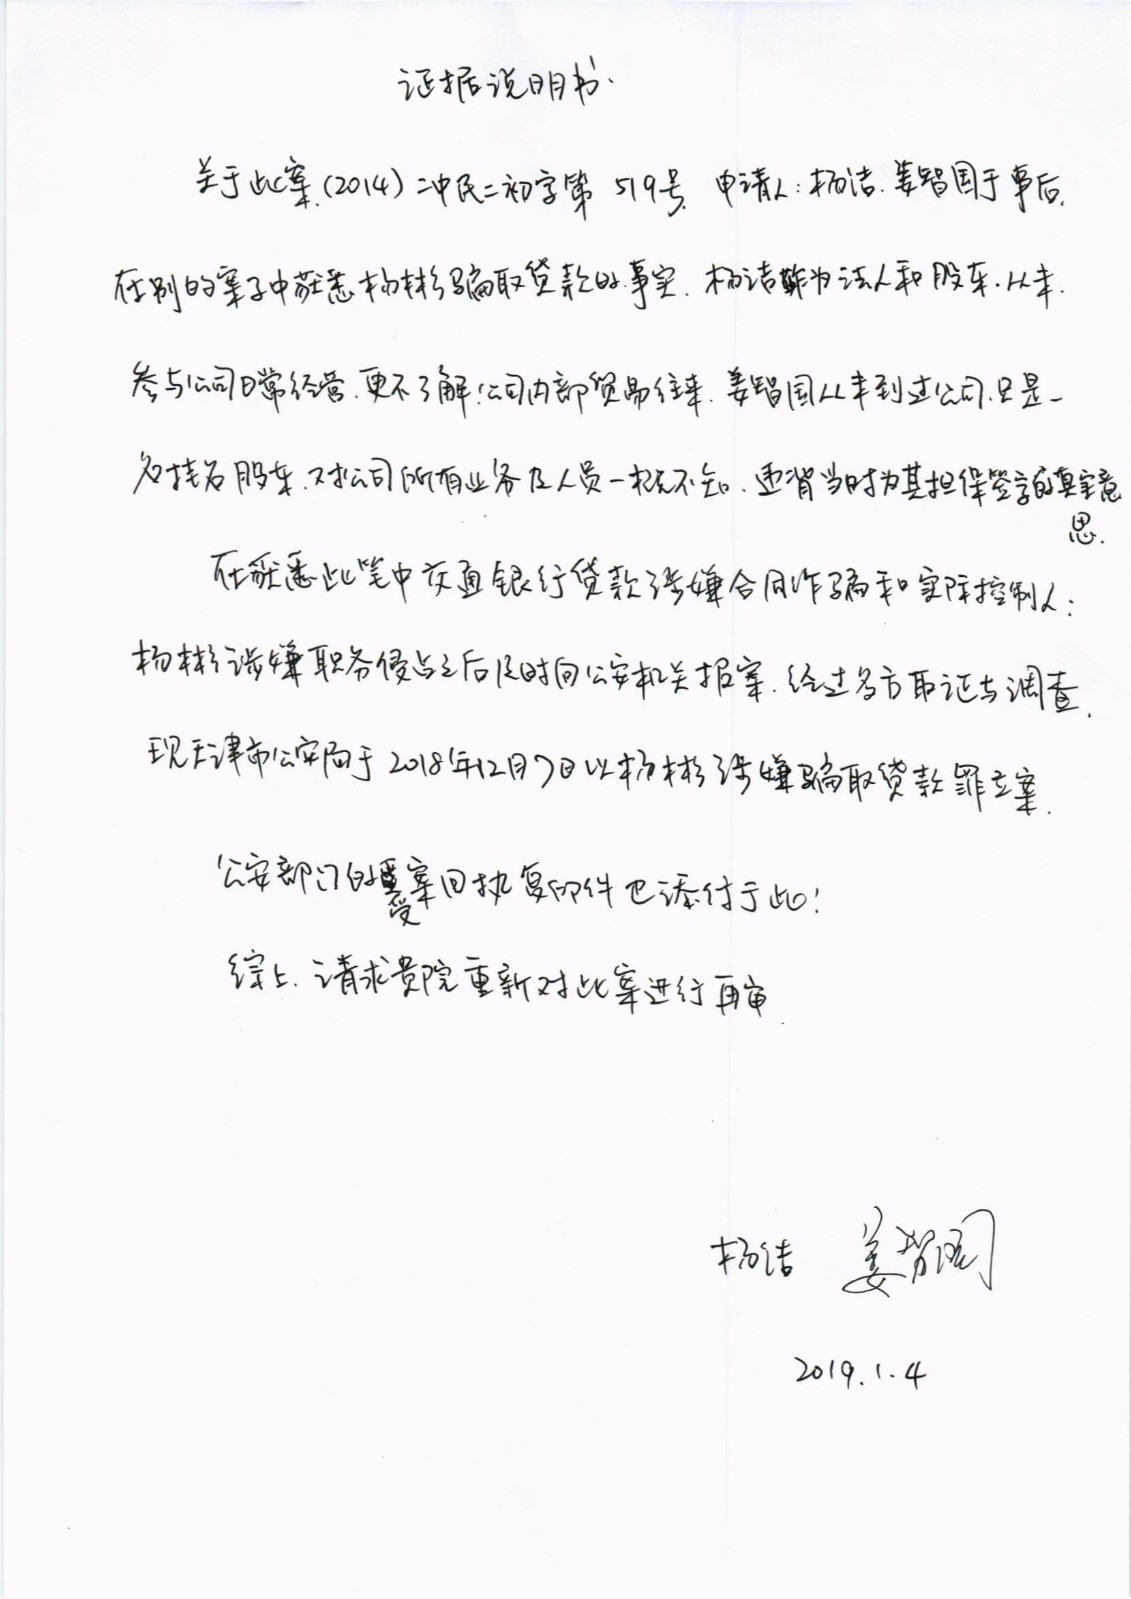 证据说明书.
关于此案.(2014)二中民二初字第 519号. 申请人:杨洁.姜智国于事后.
在别的案子中获悉杨彬骗取贷款的事实. 杨洁虽为法人和股东.从未.
参与公司日常经营.更不了解公司内部贸易往来.姜智国从未到过公司.只是一
名挂名股东.对公司所有业务及人员一概不知.违背当时为其担保签字的真实意
思.
在获悉此笔中交通银行贷款涉嫌合同诈骗和实际控制人:
杨彬涉嫌职务侵占之后及时向公安机关报案.经过多方取证与调查.
现天津市公安局于2018年12月7日以杨彬涉嫌骗取贷款罪立案.
公安部门的受案回执复印件已添付于此!
综上.请求贵院重新对此案进行再审.
杨洁 姜智国
2019.1.4